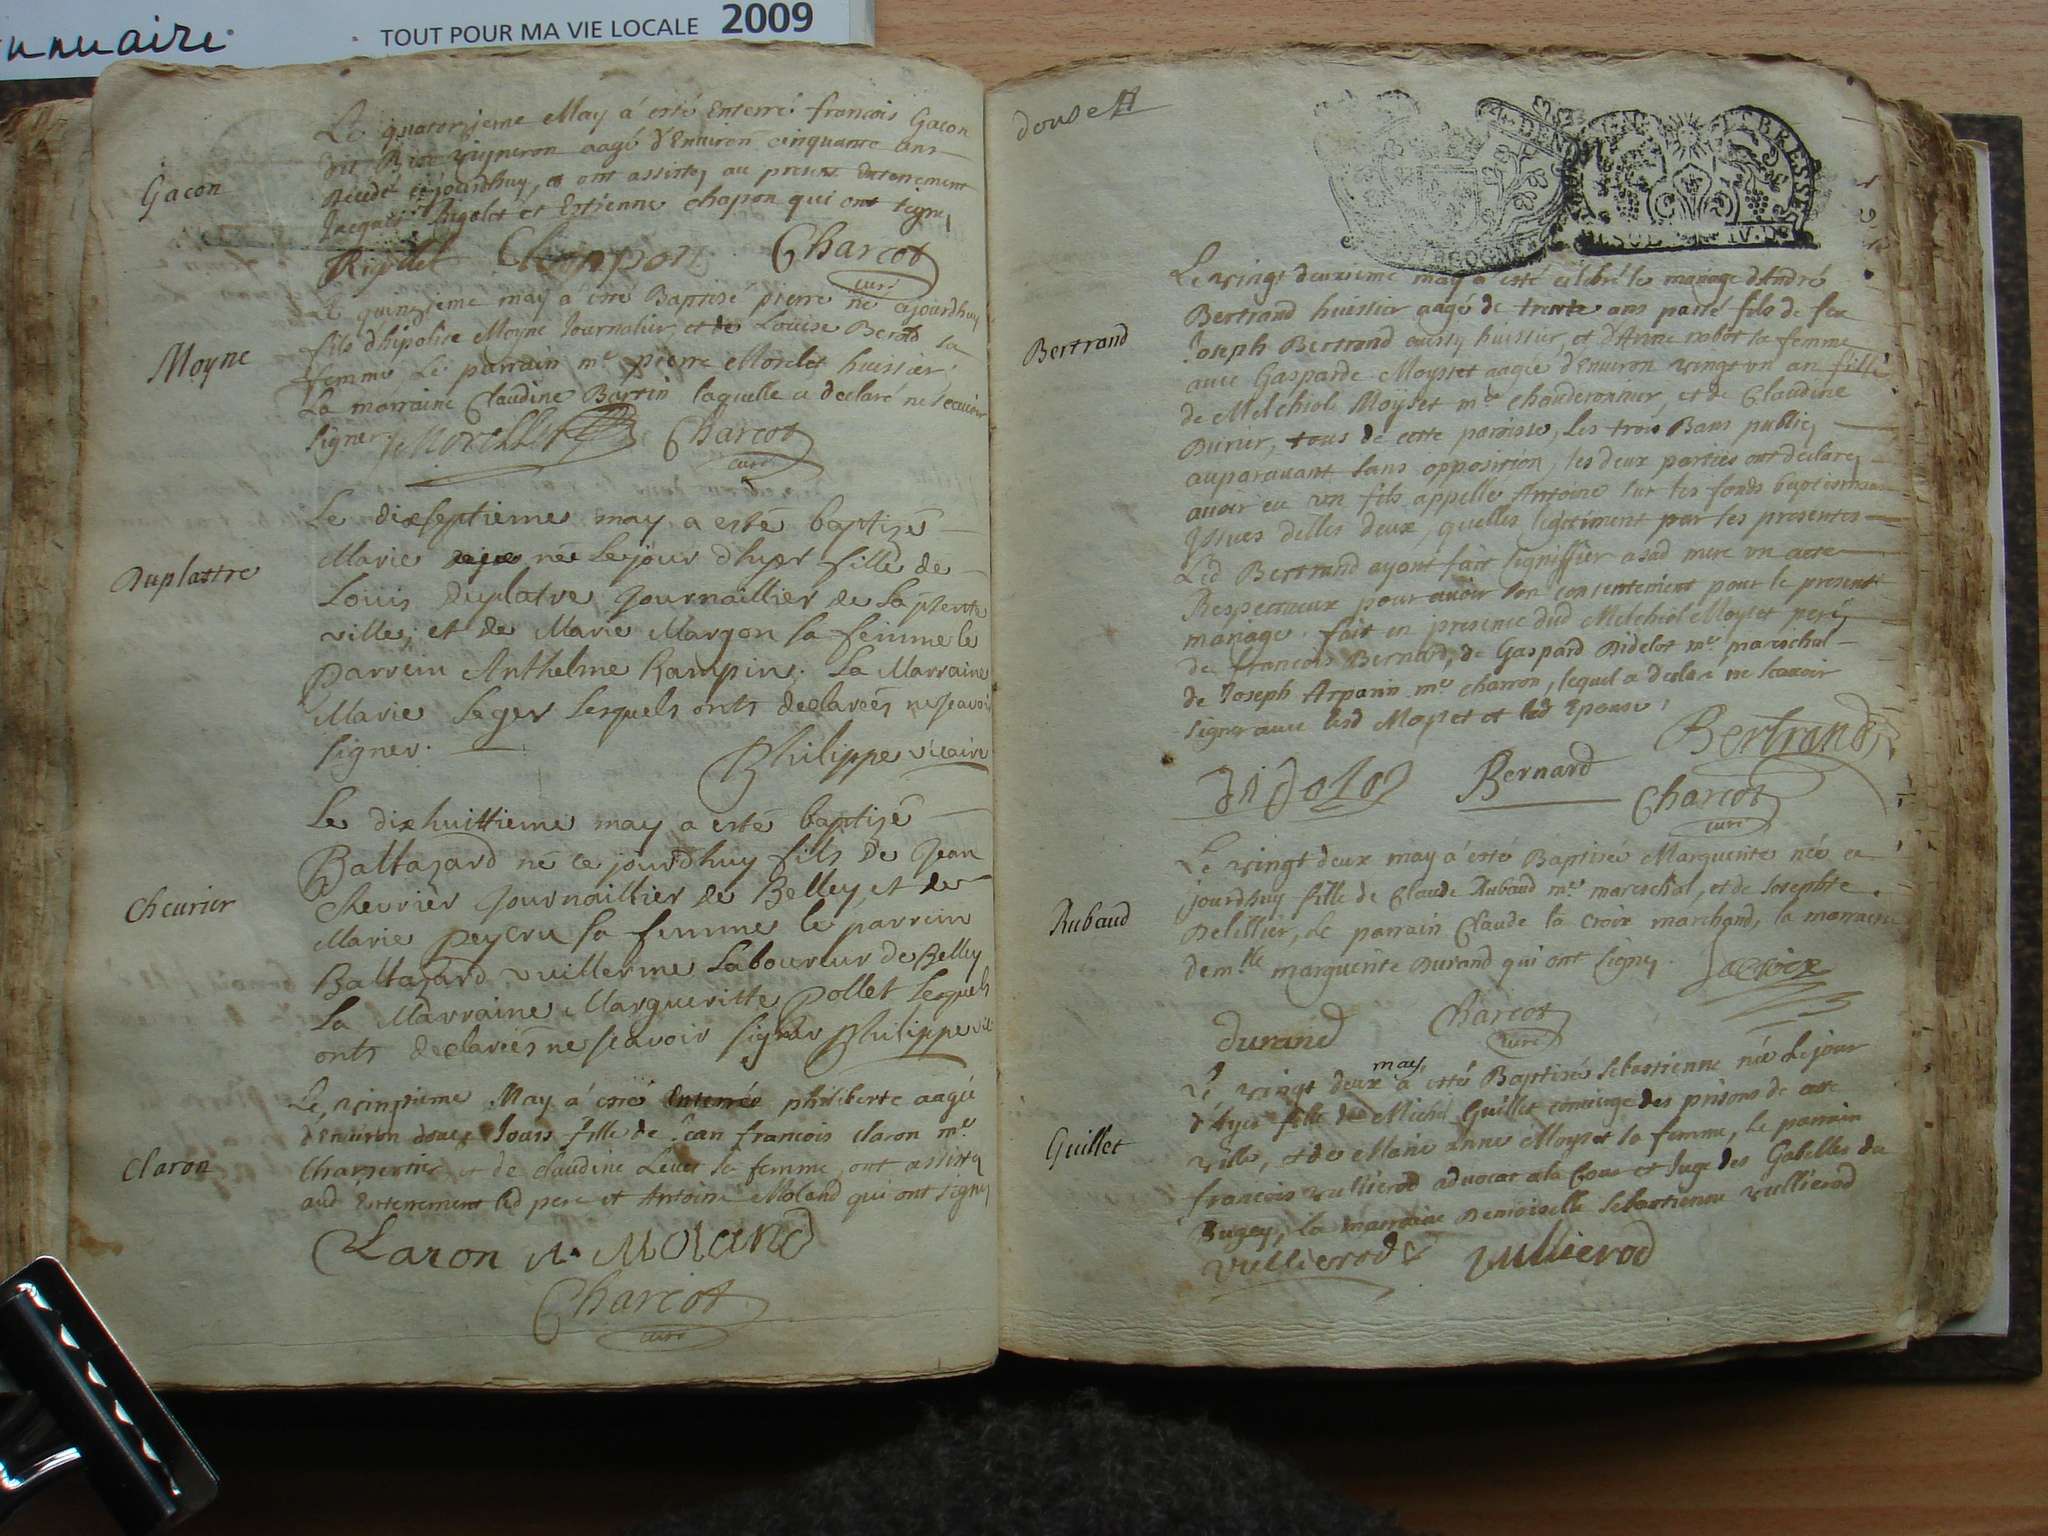 nnuaire
TOUT POUR MA VIE LOCALE 2009
Le quatorzieme May á esté Enterré francois Gacon
dit vigneron aagé d'Environ cinquante ans
decedé cejourdhuy, et ont assistez au present Enterrement
Jacques Rigolet et Estienne chapon qui ont signez
Gacon
Rigollet Chappon Charcot
curé
Le quinzieme may á esté Baptisé pierre né cejourdhuy
fils d'hipolite Moyne Journalier, et de Louise Berod sa
femme, Le parrain me pierre Morelet huissier,
La marraine Claudine Bartin laquelle a declaré ne scavoir
signer
Moyne
Morellet Charcot
curé
Le dixseptieme may a esté baptizé
Marie née le jour dhyer fille de
Louis duplatre Journaillier de la presente
ville, et de Marie Margon sa femme le
parrein Anthelme Rampin. La Marraine
Marie Leger lesquels onts declareés ne scavoir
signer.
Duplastre
Philippe vicaire
Le dixhuittieme may a esté baptizé
Baltazard né ce jourdhuy fils de Jean
Chevrier Journaillier de Belley, et de
Marie peycru sa femme le parrein
Baltazard vuillerme Laboureur de Belley
La Marraine Margueritte Pollet Lesquels
onts declareés ne scavoir signer Philippe vic
Cheurier
Le vingtieme May á esté Enterrée philiberte aagée
d'Environ douze Jours fille de Jean francois claron me
Charpentier et de claudine Leuet sa femme, ont assistez
aud Enterrement led pere et Antoine Moland qui ont signez
Claron
Claron A. Moland
Charcot
curé
douse
BOURGOGNE
BRESSE
Le vingt deuxieme may a esté celebré le mariage d'André
Bertrand huissier aagé de trente ans passé fils de feu
Joseph Bertrand aussy huissier, et d'Anne robot sa femme
avec Gasparde Moyset aagée d'Environ vingt un an fille
de Melchiol Moyset me chauderonnier, et de Claudine
Durier, tous de cette paroisse, Les trois Bans publiez
auparavant sans opposition, les deux parties ont declarez
avoir eu un fils appellé Antoine sur les fonds baptismaux
Issues delles deux, quelles legitiment par les presentes
Led Bertrand ayant fait signiffier asad mere un acte
Respectueux pour avoir son consentement pour le present
mariage. fait en presence dud Melchiol Moyset pere,
de francois Bernard, de Gaspard Didelot me mareschal
de Joseph Arpanin me charron, lequel a declaré ne scavoir
signer avec led Moyset et lad Epouse,
Bertrand
Bertrand
didolot Bernard Charcot
curé
Le vingt deux may á esté Baptisée Marguerite née ce
jourdhuy fille de Claude Rubaud me mareschal, et de Josephte
Delillier, Le parrain Claude la Croix marchand, la marraine
demlle marguerite Durand qui ont signez.
Rubaud
Lacroix
durand Charcot
curé
Le vingt deux may á esté Baptisée Sebastienne née Le jour
d'hyer fille de Michel Guillet concierge des prisons de cette
ville, et de Marie Anne Moyset sa femme, Le parrain
francois vullierod advocat ala Cour et Juge des Gabelles du
Bugey, La marraine Demoiselle Sebastienne vullierod
Guillet
vullierod vullierod